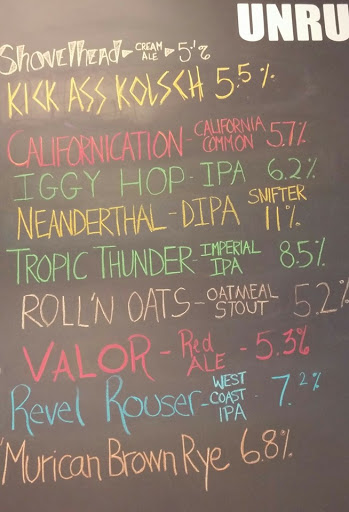 UNRU
Shovelhead - CREAM ALE - 5.1%
KICK ASS KOLSCH 5.5%
CALIFORNICATION - CALIFORNIA COMMON 5.7%
IGGY HOP - IPA 6.2%
NEANDERTHAL - DIPA SNIFTER 11%
TROPIC THUNDER - IMPERIAL IPA 8.5%
ROLL'N OATS - OATMEAL STOUT 5.2%
VALOR - Red ALE - 5.3%
Revel Rouser - WEST COAST IPA - 7.2%
'Murican Brown Rye 6.8%